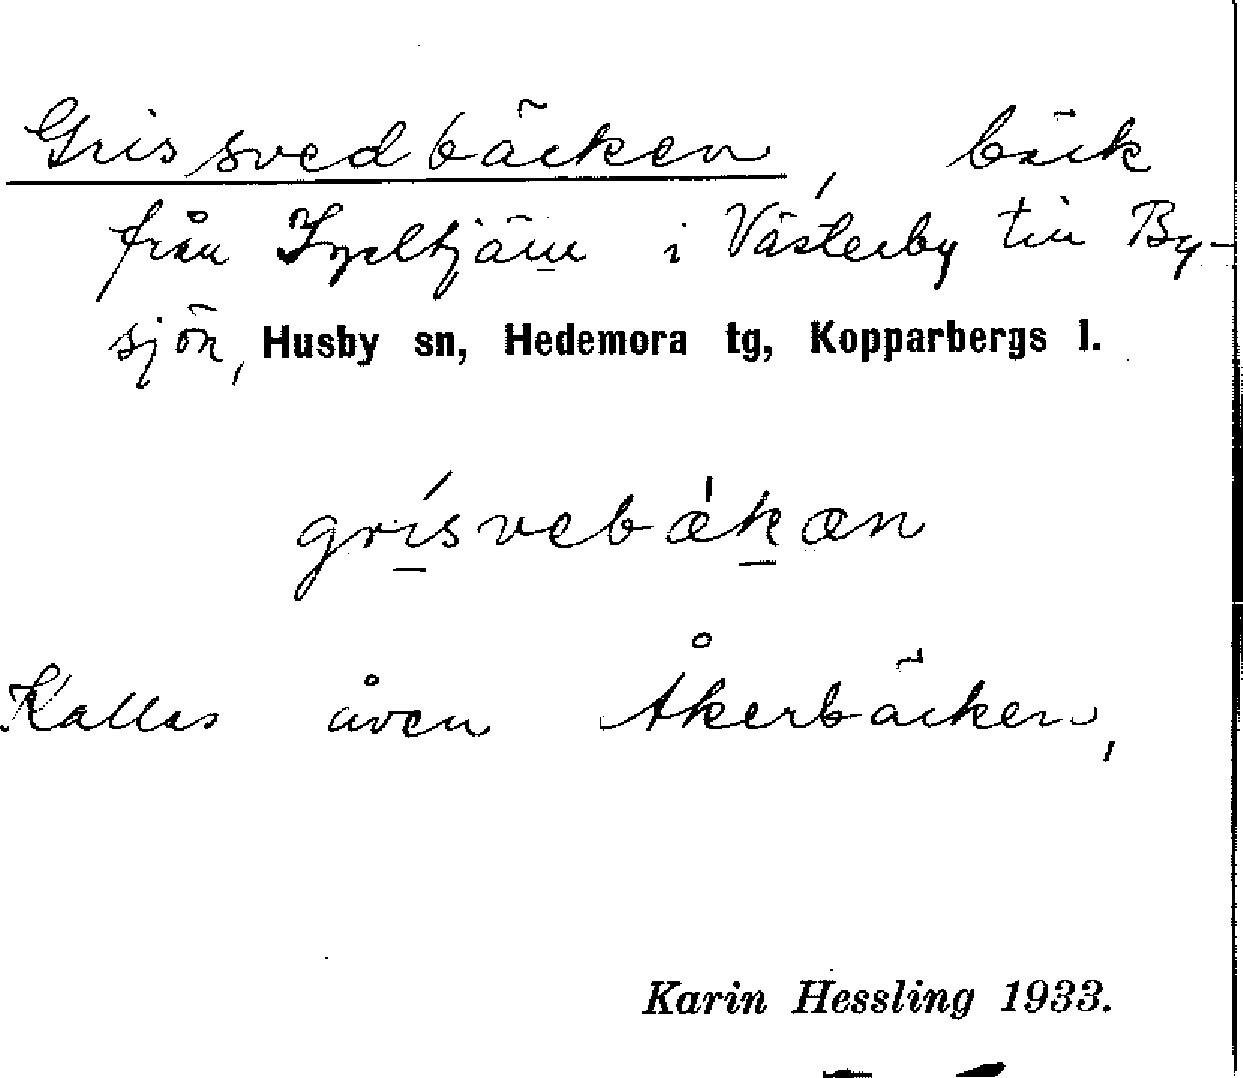 Grissvedbäcken, bäck
från Igeltjärn i Västerby till By-
sjön, Husby sn, Hedemora tg, Kopparbergs l.
grísvebǽkæn
Kallas även Åkerbäcken,
Karin Hessling 1933.